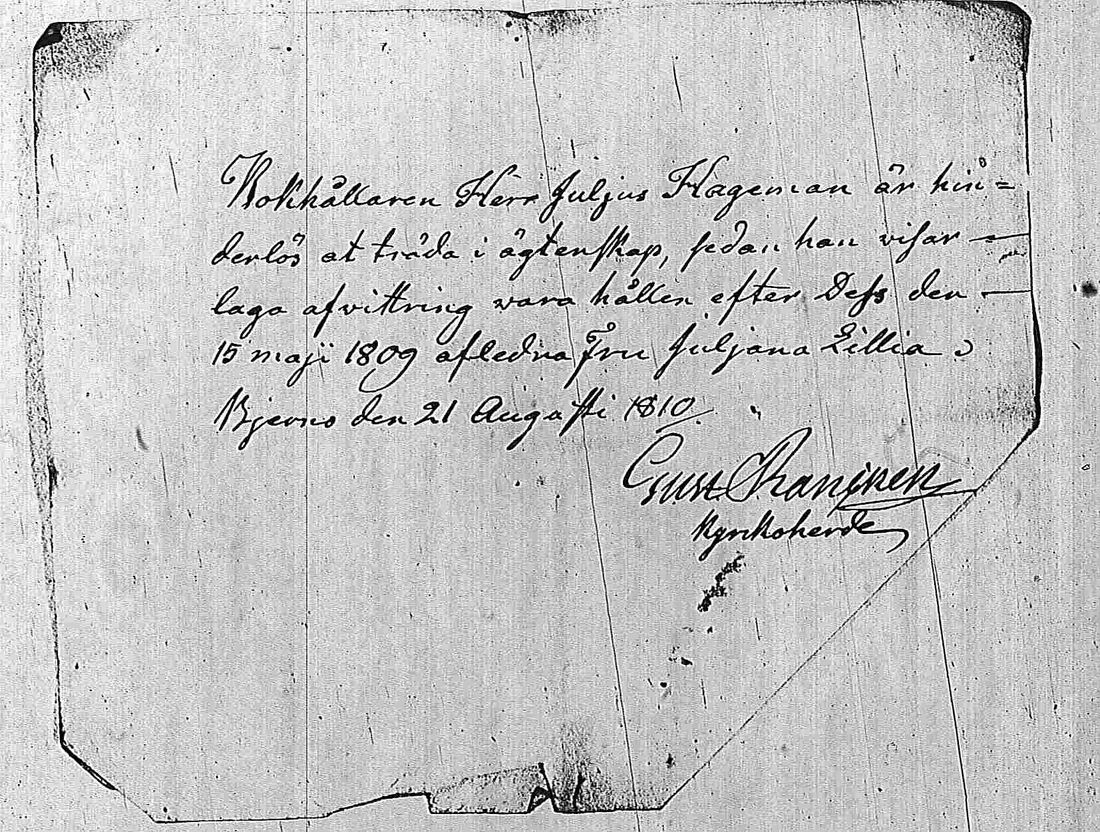 Bokhållaren Herr Juljus Hageman är hin=
derlös at träda i ägtenskap, sedan han visar —
laga afvittring vara hållen efter Dess den —
15 maji 1809 afledna Fru Juljana Lillia.
Bjerno den 21 Augusti 1810.
Gust Rancken
Kyrkoherde